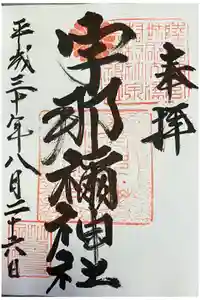 奉拝
宇那禰神社
平成三十年八月二十六日